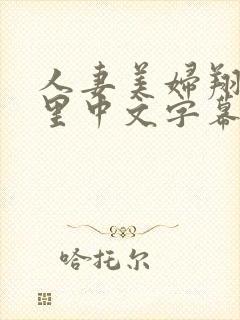 人妻美婦翔
里中文字幕
哈托尔